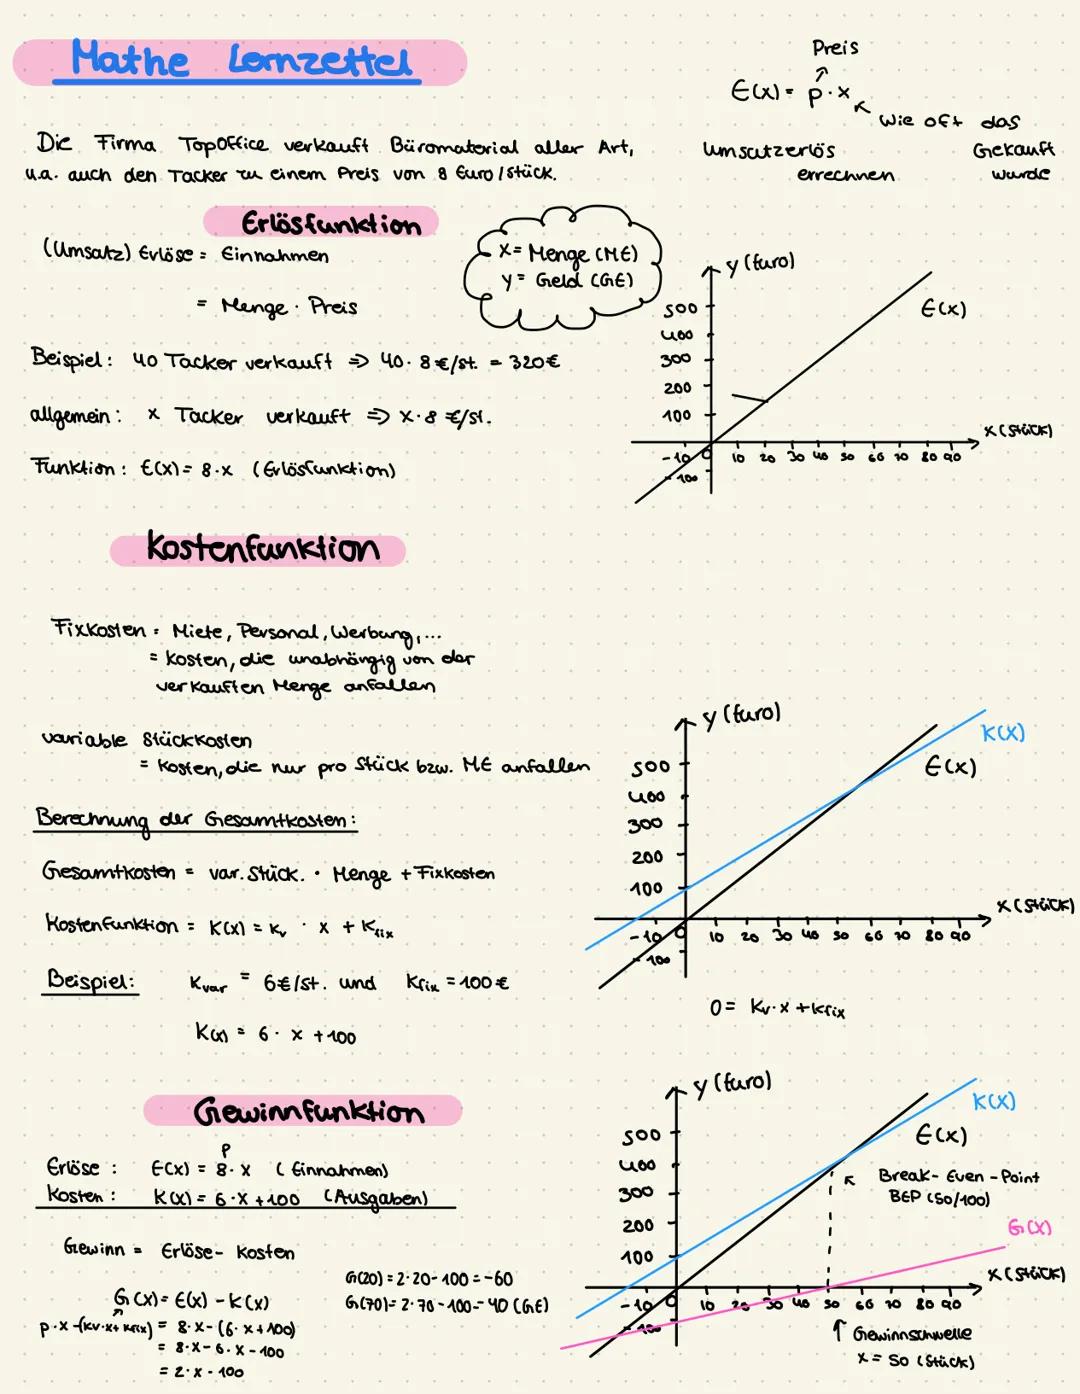 Mathe Lernzettel
Preis
E(x) = p · x
Wie oft das
Gekauft
wurde
Umsatzerlös
errechnen
Die Firma TopOffice verkauft Büromaterial aller Art,
u.a. auch den Tacker zu einem Preis von 8 Euro/Stück.
Erlösfunktion
(Umsatz) Erlöse = Einnahmen
= Menge · Preis
x = Menge (ME)
y = Geld (GE)
Beispiel: 40 Tacker verkauft => 40 · 8 €/St. = 320€
allgemein: x Tacker verkauft => x · 8 €/St.
Funktion: E(x) = 8 · x (Erlösfunktion)
y (Euro)
E(x)
500
400
300
200
100
x (Stück)
-10 0 10 20 30 40 50 60 70 80 90
-100
Kostenfunktion
Fixkosten = Miete, Personal, Werbung, ...
= Kosten, die unabhängig von der
verkauften Menge anfallen
variable Stückkosten
= Kosten, die nur pro Stück bzw. ME anfallen
Berechnung der Gesamtkosten:
Gesamtkosten = var. Stück. · Menge + Fixkosten
Kostenfunktion = K(x) = Kv · x + Kfix
Beispiel: Kvar = 6€/St. und Kfix = 100€
K(x) = 6 · x + 100
y (Euro)
K(x)
E(x)
500
400
300
200
100
x (Stück)
-10 0 10 20 30 40 50 60 70 80 90
-100
0 = Kv · x + Kfix
Gewinnfunktion
p
Erlöse: E(x) = 8 · x (Einnahmen)
Kosten: K(x) = 6 · x + 100 (Ausgaben)
Gewinn = Erlöse - Kosten
G(x) = E(x) - K(x)
p · x - (Kv · x + Kfix) = 8 · x - (6 · x + 100)
= 8 · x - 6 · x - 100
= 2 · x - 100
G(20) = 2 · 20 - 100 = -60
G(70) = 2 · 70 - 100 = 40 (GE)
y (Euro)
K(x)
E(x)
500
400
300
200
100
Break-Even-Point
BEP (50/100)
G(x)
x (Stück)
-10 0 10 20 30 40 50 60 70 80 90
-100
Gewinnschwelle
x = 50 (Stück)